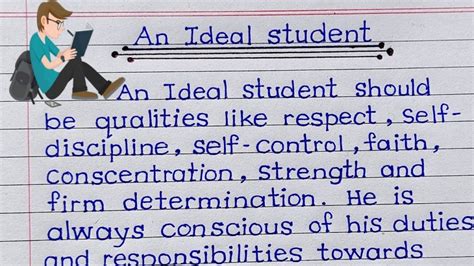 An Ideal student
An Ideal student should
be qualities like respect, self-
discipline, self-control, faith,
Conscentration, strength and
firm determination. He is
always conscious of his duties
and responsibilities towards